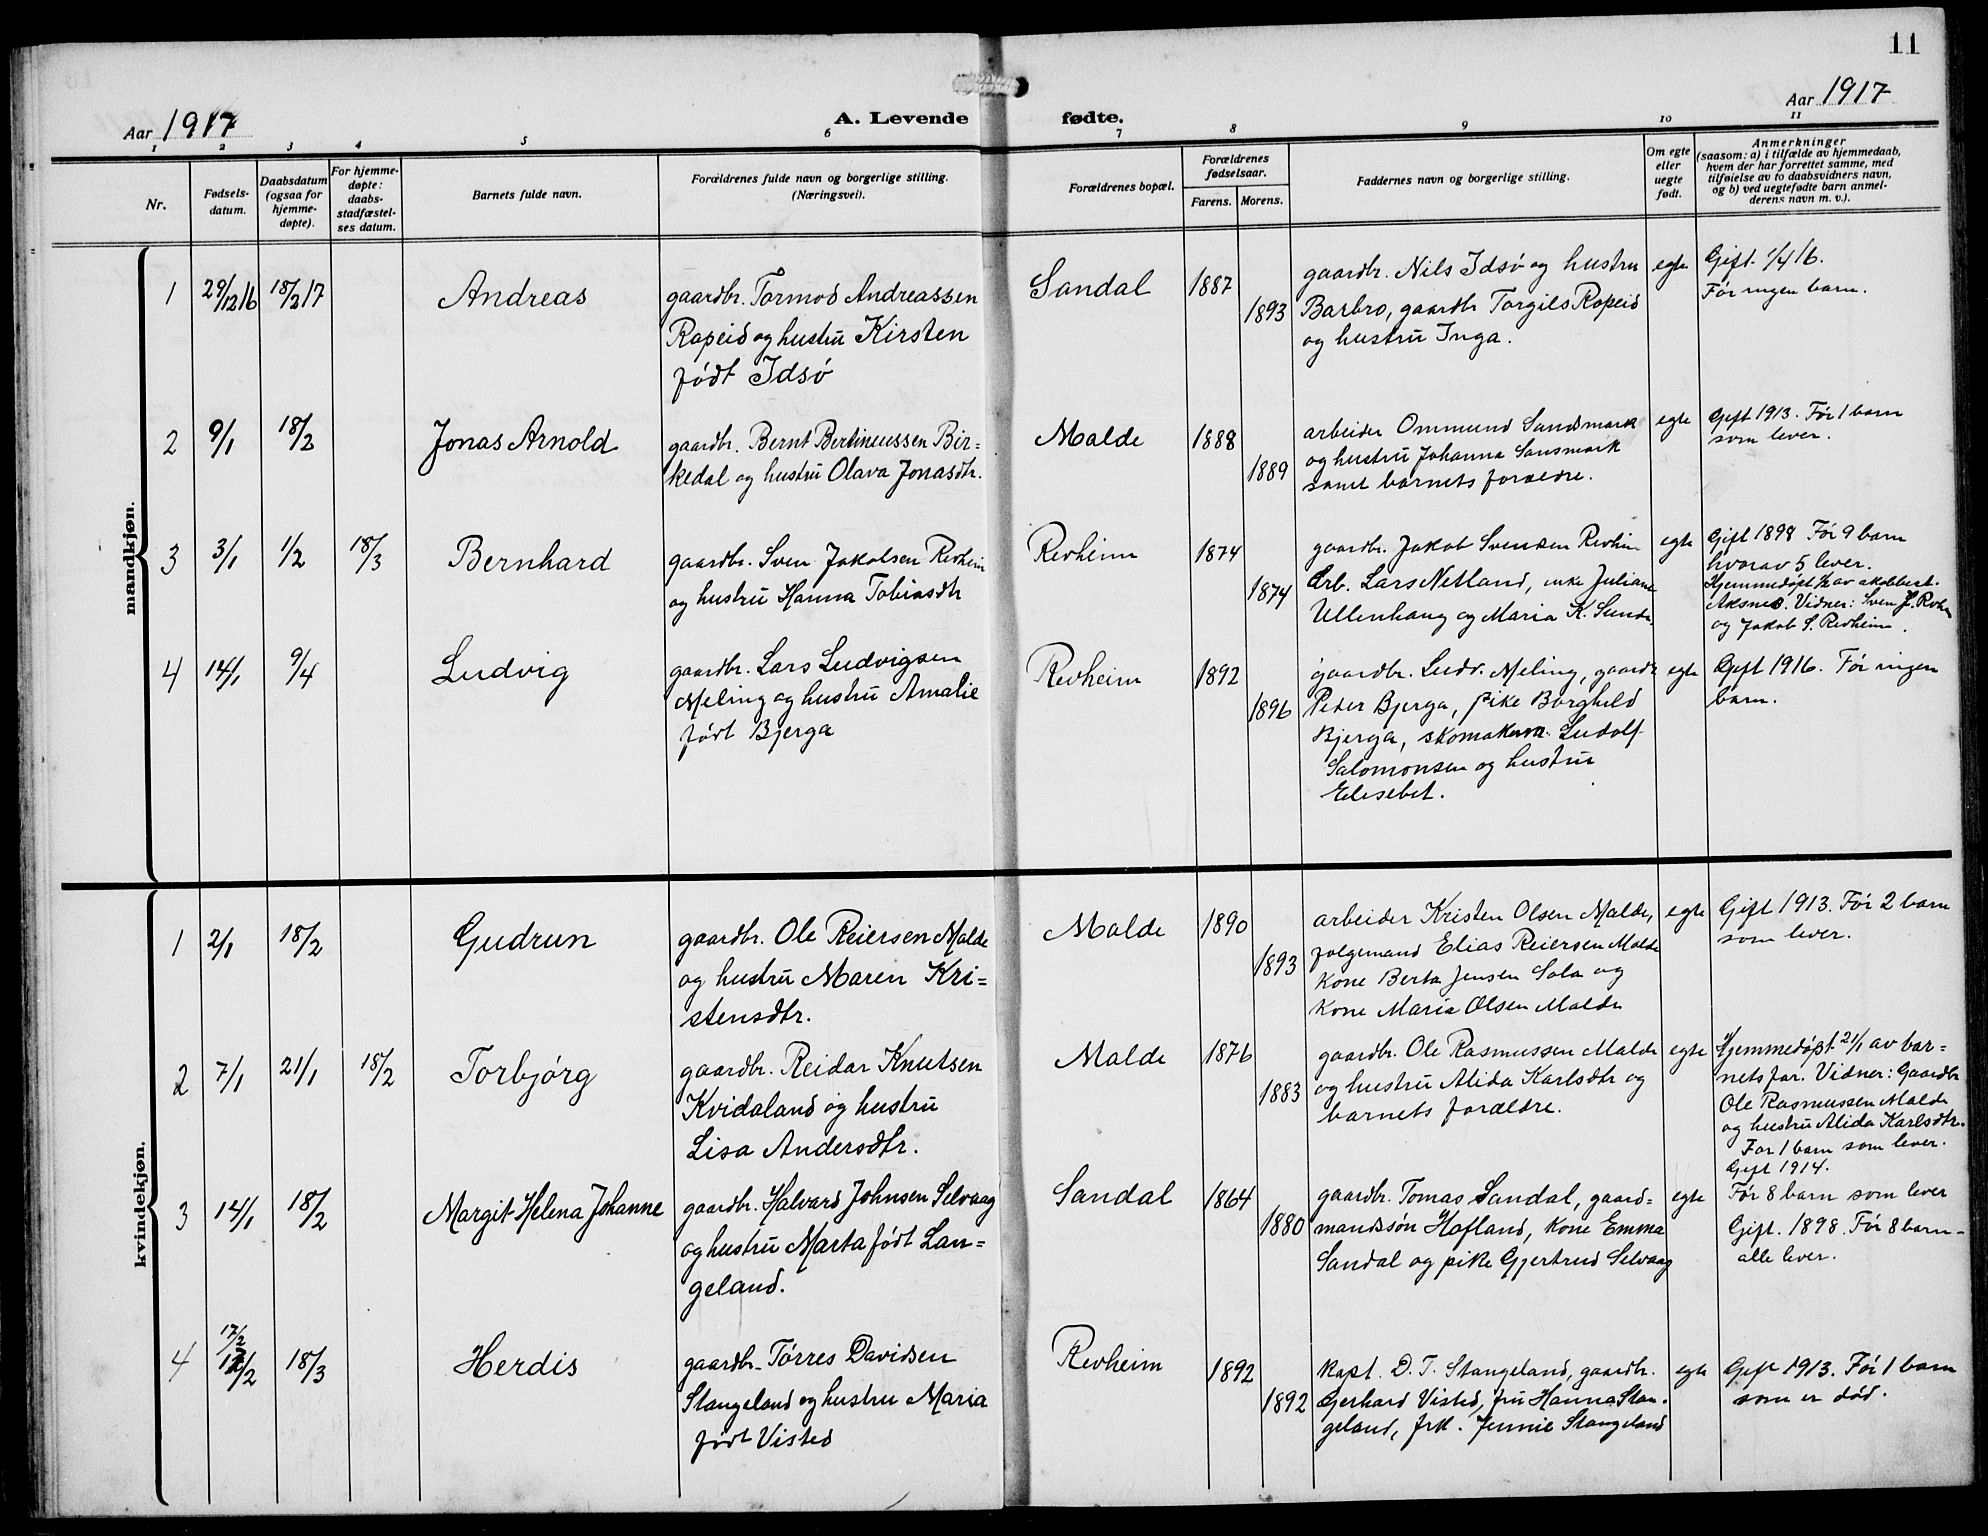 11
Aar 1917
A. Levende fødte.
Aar 1917
1 2 3 4 5 6 7 8 9 10 11
Nr.
Fødsels-
datum.
Daabsdatum
(ogsaa for
hjemme-
døpte).
For hjemme-
døpte:
daabs-
stadfæstel-
ses datum.
Barnets fulde navn.
Forældrenes fulde navn og borgerlige stilling.
(Næringsvei).
Forældrenes bopæl.
Forældrenes
fødselsaar.
Farens. Morens.
Faddernes navn og borgerlige stilling.
Om egte
eller
uegte
født.
Anmerkninger
(saasom: a) i tilfælde av hjemmedaab,
hvem der har forrettet samme, med
tilføielse av to daabsvidners navn,
og b) ved uegtefødte barn anmel-
derens navn m. v.).
mandkjøn.
1 29/12 16 18/2 17 Andreas
gaardbr. Tormod Andreassen
Rapeid og hustru Kirsten
født Idsø
Sandal 1887 1893
gaardbr. Nils Idsø og hustru
Barbro, gaardbr Torgils Rapeid
og hustru Inga.
egte
Gift 1/4 16.
Før ingen barn.
2 9/1 18/2 Jonas Arnold
gaardbr. Bernt Bertineussen Bir=
kedal og hustru Olava Jonasdtr.
Malde 1888 1889
arbeider Ommund Sandsmark
og hustru Johanna Sansmark
samt barnets forældre.
egte
Gift 1913. Før 1 barn
som lever.
3 3/1 1/2 18/3 Bernhard
gaardbr. Sven Jakobsen Revheim
og hustru Hanna Tobiasdtr
Revheim 1874 1874
gaardbr. Jakob Svendsen Revheim
Arb. Lars Netland, enke Juliane
Ullenhaug og Maria K. Sunde.
egte
Gift 1898 Før 9 barn
hvorav 5 lever.
Hjemmedøpt 1/2 av
Aksnes. Vidner: Sven J. Revheim
og Jakob S. Revheim.
4 14/1 9/4 Ludvig
gaardbr. Lars Ludvigsen
Meling og hustru Amalie
født Bjerga
Revheim 1892 1896
gaardbr. Ludv. Meling, gaardbr
Peder Bjerga, pike Borghild
Bjerga, skomakerm. Ludolf
Salomonsen og hustru
Elisebet.
egte
Gift 1916. Før ingen
barn.
kvindekjøn.
1 2/1 18/2 Gudrun
gaardbr. Ole Reiersen Malde
og hustru Maren Kri=
stensdtr.
Malde 1890 1893
arbeider Kristen Olsen Malde,
folgemand Elias Reiersen Malde
Kone Berta Jensen Sola og
Kone Maria Olsen Malde
egte
Gift 1913. Før 2 barn
som lever.
2 7/1 21/1 18/2 Torbjørg
gaardbr. Reidar Knutsen
Kvidaland og hustru
Lisa Andersdtr.
Malde 1876 1883
gaardbr. Ole Rasmussen Malde
og hustru Alida Karlsdtr og
barnets forældre.
egte
Hjemmedøpt 21/1 av bar=
nets far. Vidner: Gaardbr
Ole Rasmussen Malde
og hustru Alida Karlsdtr.
Før 1 barn som lever.
Gift 1914.
3 14/1 18/2 Margit Helena Johanne
gaardbr. Halvard Johnsen Selvaag
og hustru Marta født Lan=
geland.
Sandal 1864 1880
gaardbr. Tomas Sandal, gaard=
mandssøn Hofland, Kone Emma
Sandal og pike Gjertrud Selvaag
egte
Før 8 barn som lever
Gift. 1898. Før 8 barn -
alle lever.
4 17/2 18/3 Herdis
gaardbr. Tørres Davidsen
Stangeland og hustru Maria
født Visted
Revheim 1892 1892
Kapt. D. T. Stangeland, gaardbr.
Gerhard Visted, fru Hanna Stan-
geland, frk. Jennie Stangeland
egte
Gift 1913. Før 1 barn
som er død.